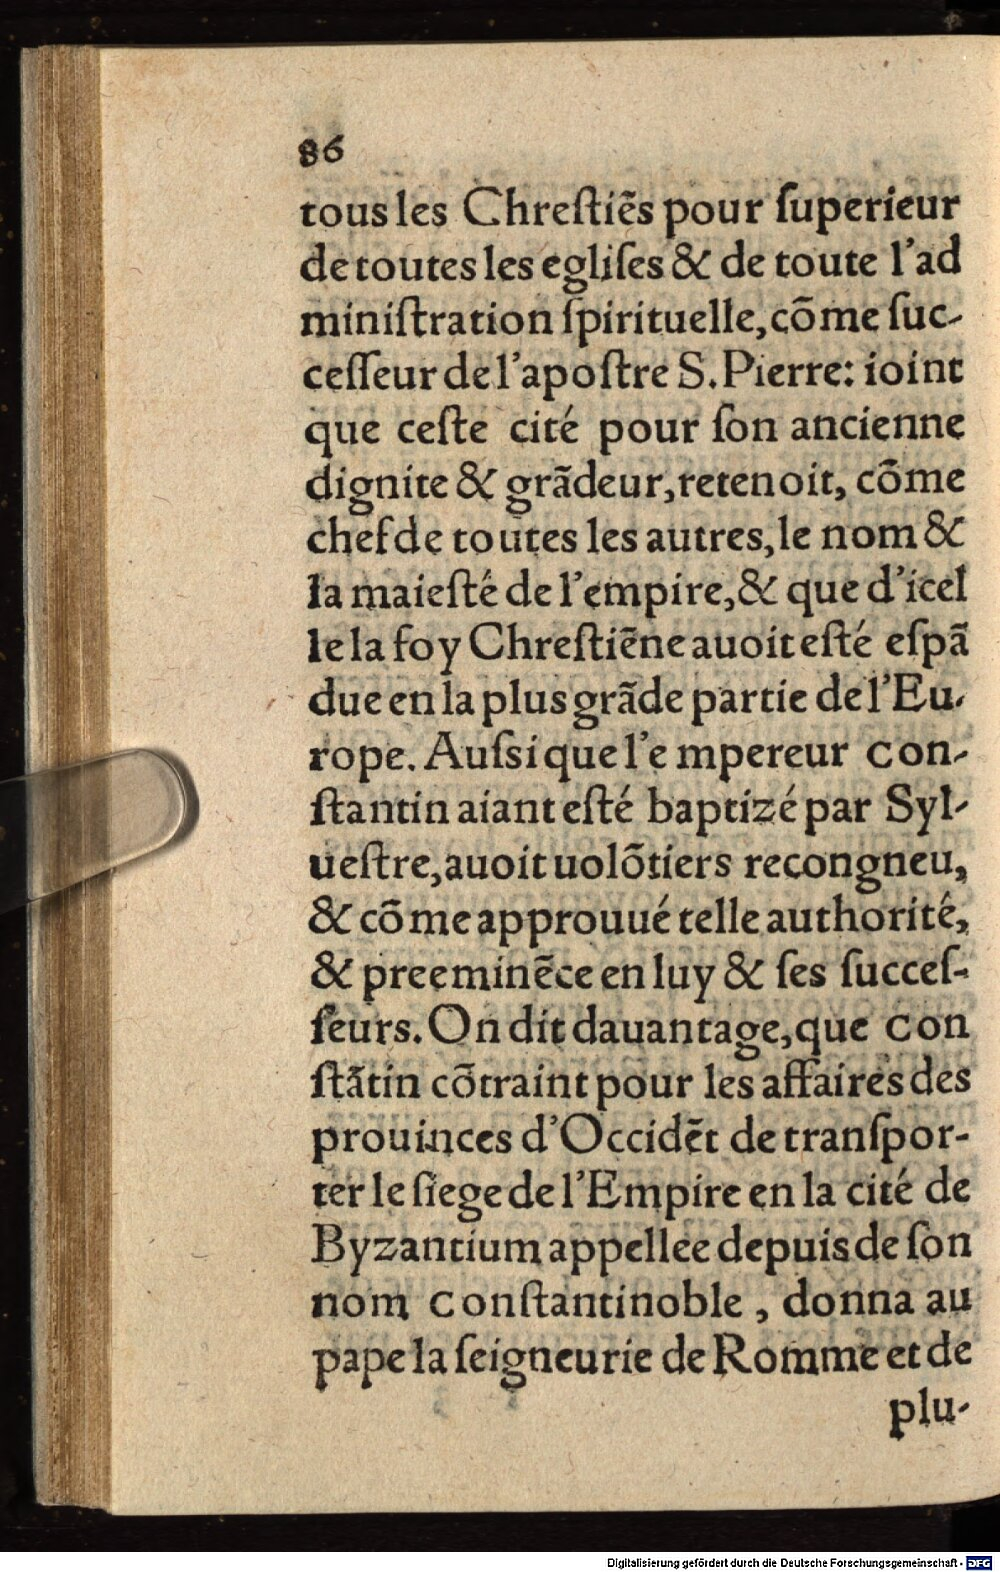 86
tous les Chreſtiẽs pour ſuperieur
de toutes les egliſes & de toute l'ad
miniſtration ſpirituelle, cõme ſuc-
ceſſeur de l'apoſtre S. Pierre: ioint
que ceſte cité pour ſon ancienne
dignite & grãdeur, retenoit, cõme
chef de toutes les autres, le nom &
la maieſté de l'empire, & que d'icel
le la foy Chreſtiẽne auoit eſté eſpã
due en la plus grãde partie de l'Eu-
rope. Auſsi que l'e mpereur Con-
ſtantin aiant eſté baptizé par Syl-
ueſtre, auoit uolõtiers recongneu,
& cõme approuué telle authorité,
& preeminẽce en luy & ſes ſucceſ-
ſeurs. On dit dauantage, que Con
ſtãtin cõtraint pour les affaires des
prouinces d'Occidẽt de tranſpor-
ter le ſiege de l'Empire en la cité de
Byzantium appellee depuis de ſon
nom Conſtantinoble, donna au
pape la ſeigneurie de Romme et de
plu-
Digitalisierung gefördert durch die Deutsche Forschungsgemeinschaft - DFG